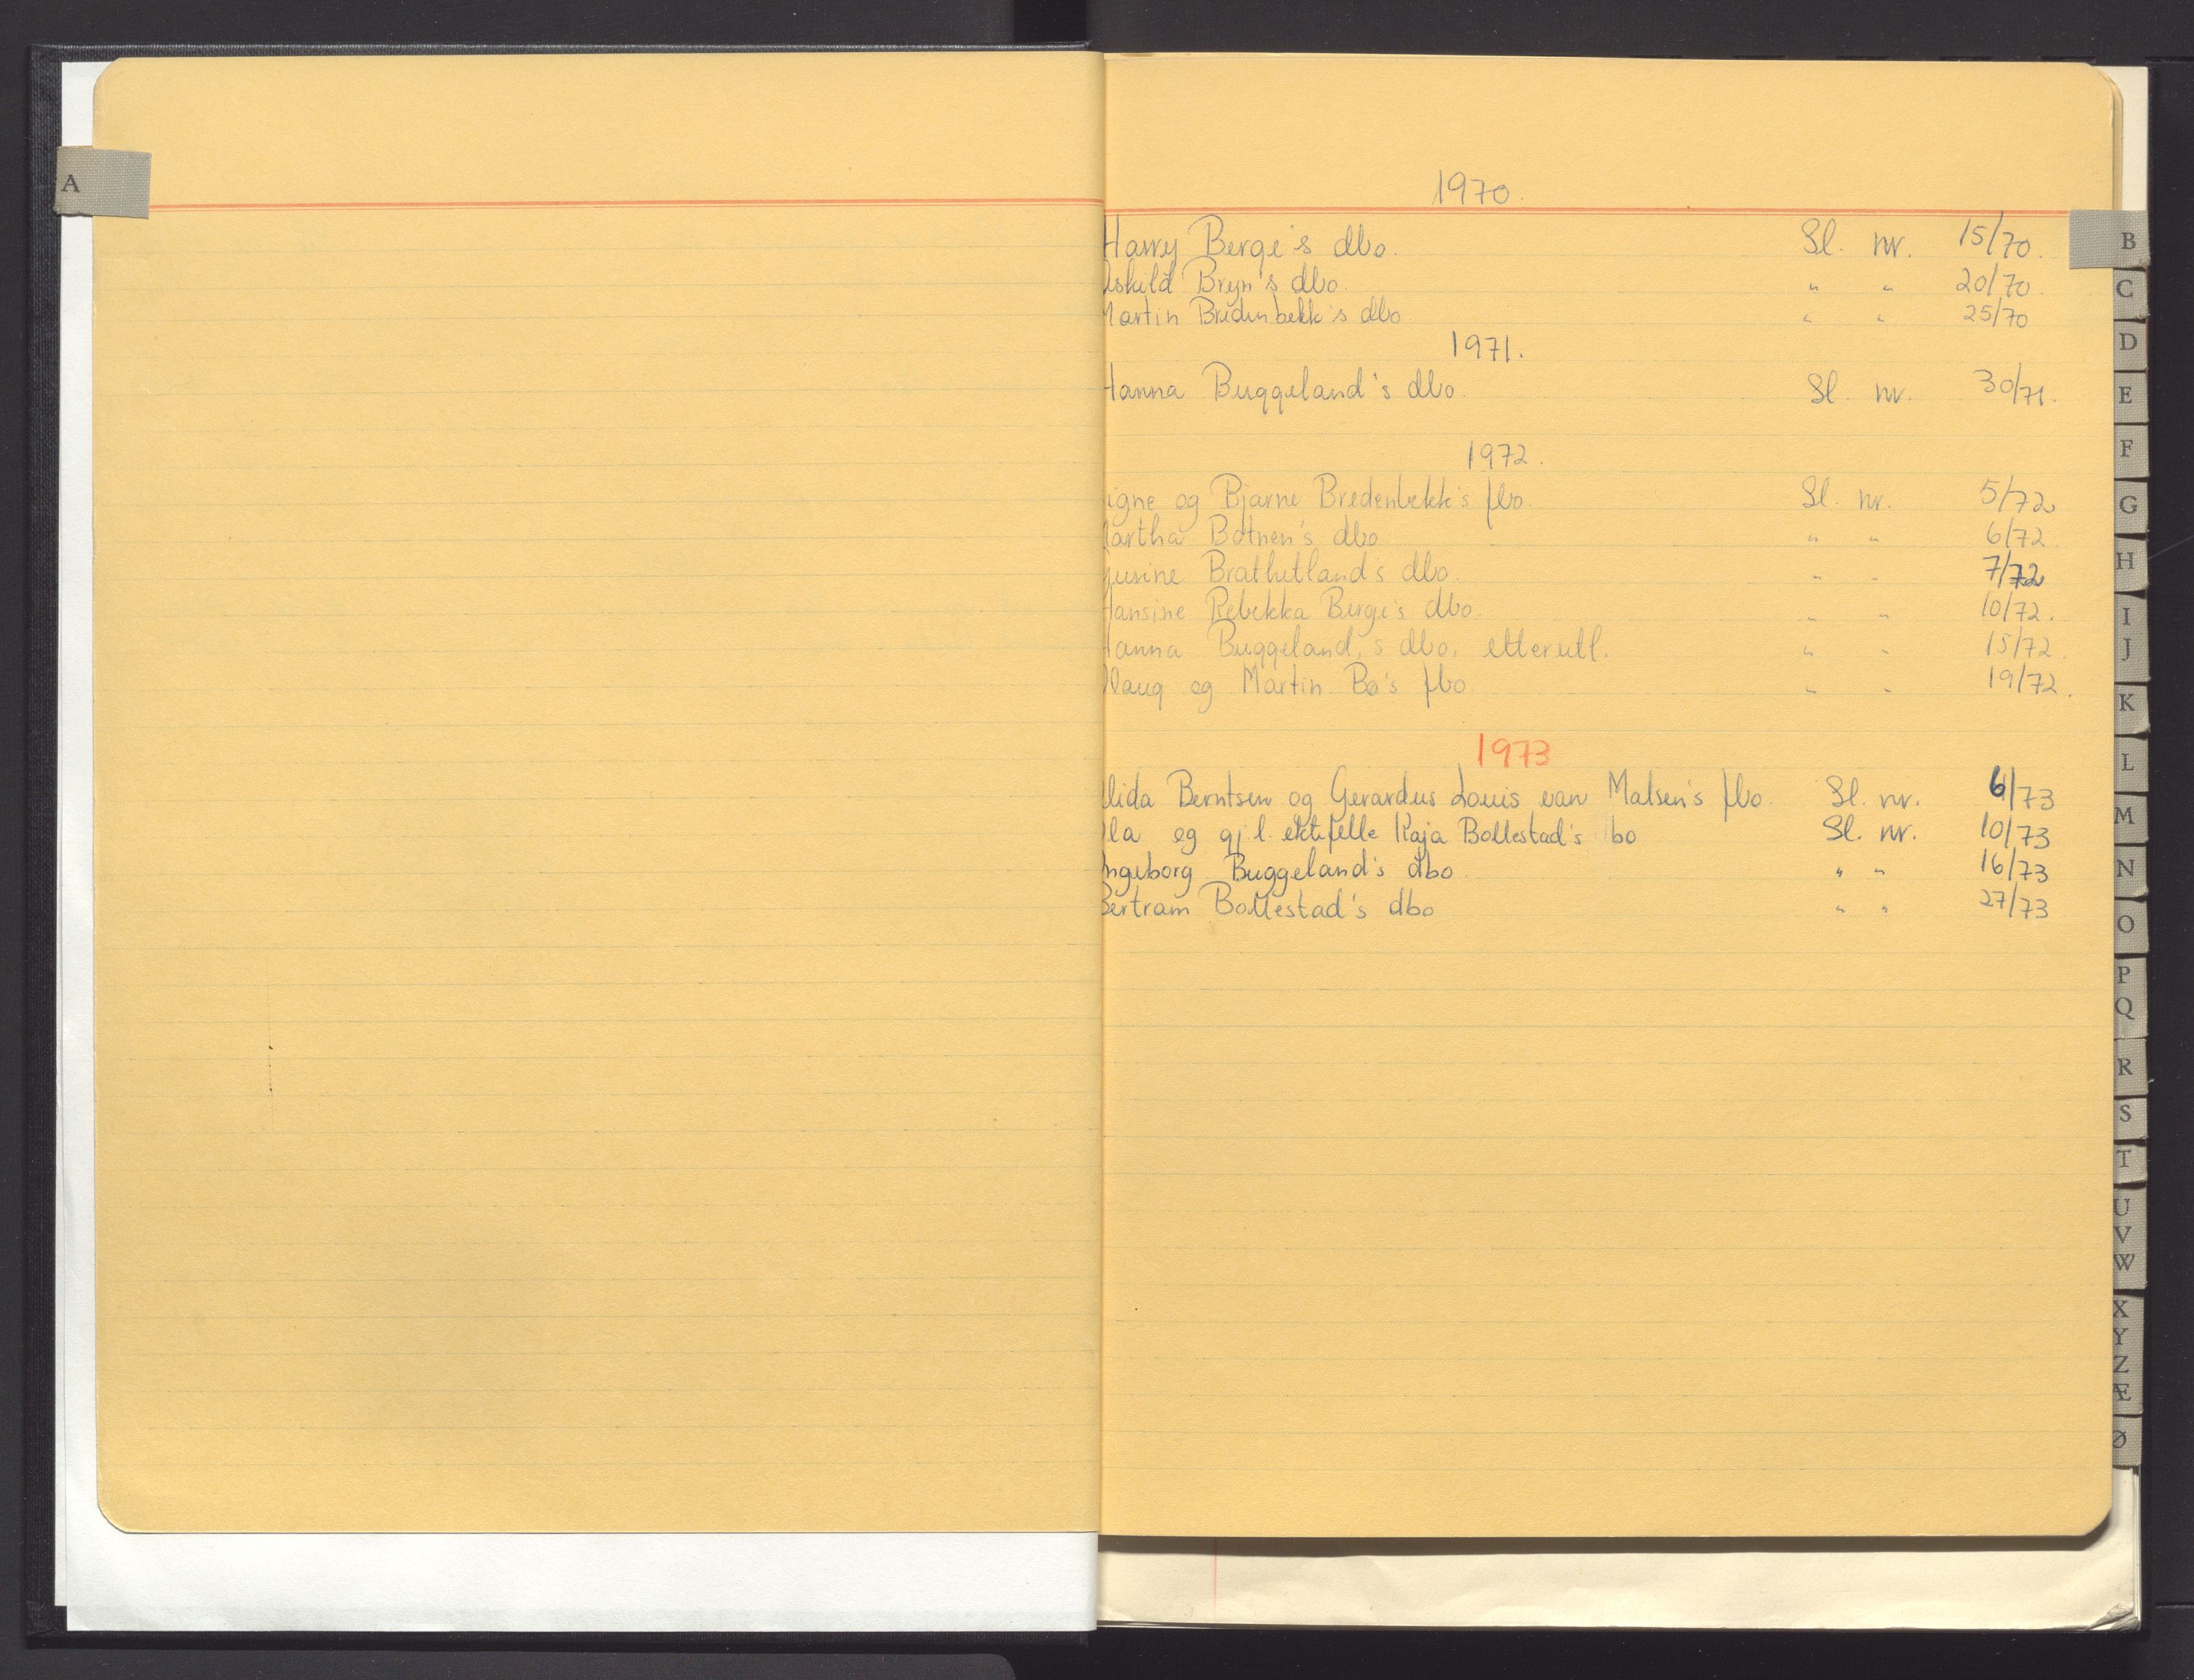 A
1970.
Harry Berge's dbo. Sl. nr. 15/70.
Askild Bryn's dbo. " " 20/70.
Martin Bredenbekk's dbo " " 25/70
1971.
Hanna Buggeland's dbo. Sl. nr. 30/71.
1972.
igne og Bjarne Bredenbekk's fbo. Sl. nr. 5/72
Martha Botnen's dbo " " 6/72
Brathetlands dbo. " " 7/72
Hansine Rebekka Berge's dbo. " " 10/72.
Hanna Buggeland,s dbo, etterutl. " " 15/72.
Olaug og Martin Bø's fbo. " " 19/72.
1973
lida Berntsen og Gerardus Louis van Malsen's fbo. Sl. nr. 6/73
la og gj.l. ektefelle Kaja Bollestad's bo Sl. nr. 10/73
Ingeborg Buggeland's dbo " " 16/73
Bertram Bollestad's dbo " " 27/73
B
C
D
E
F
G
H
I
J
K
L
M
N
O
P
Q
R
S
T
U
V
W
X
Y
Z
Æ
Ø